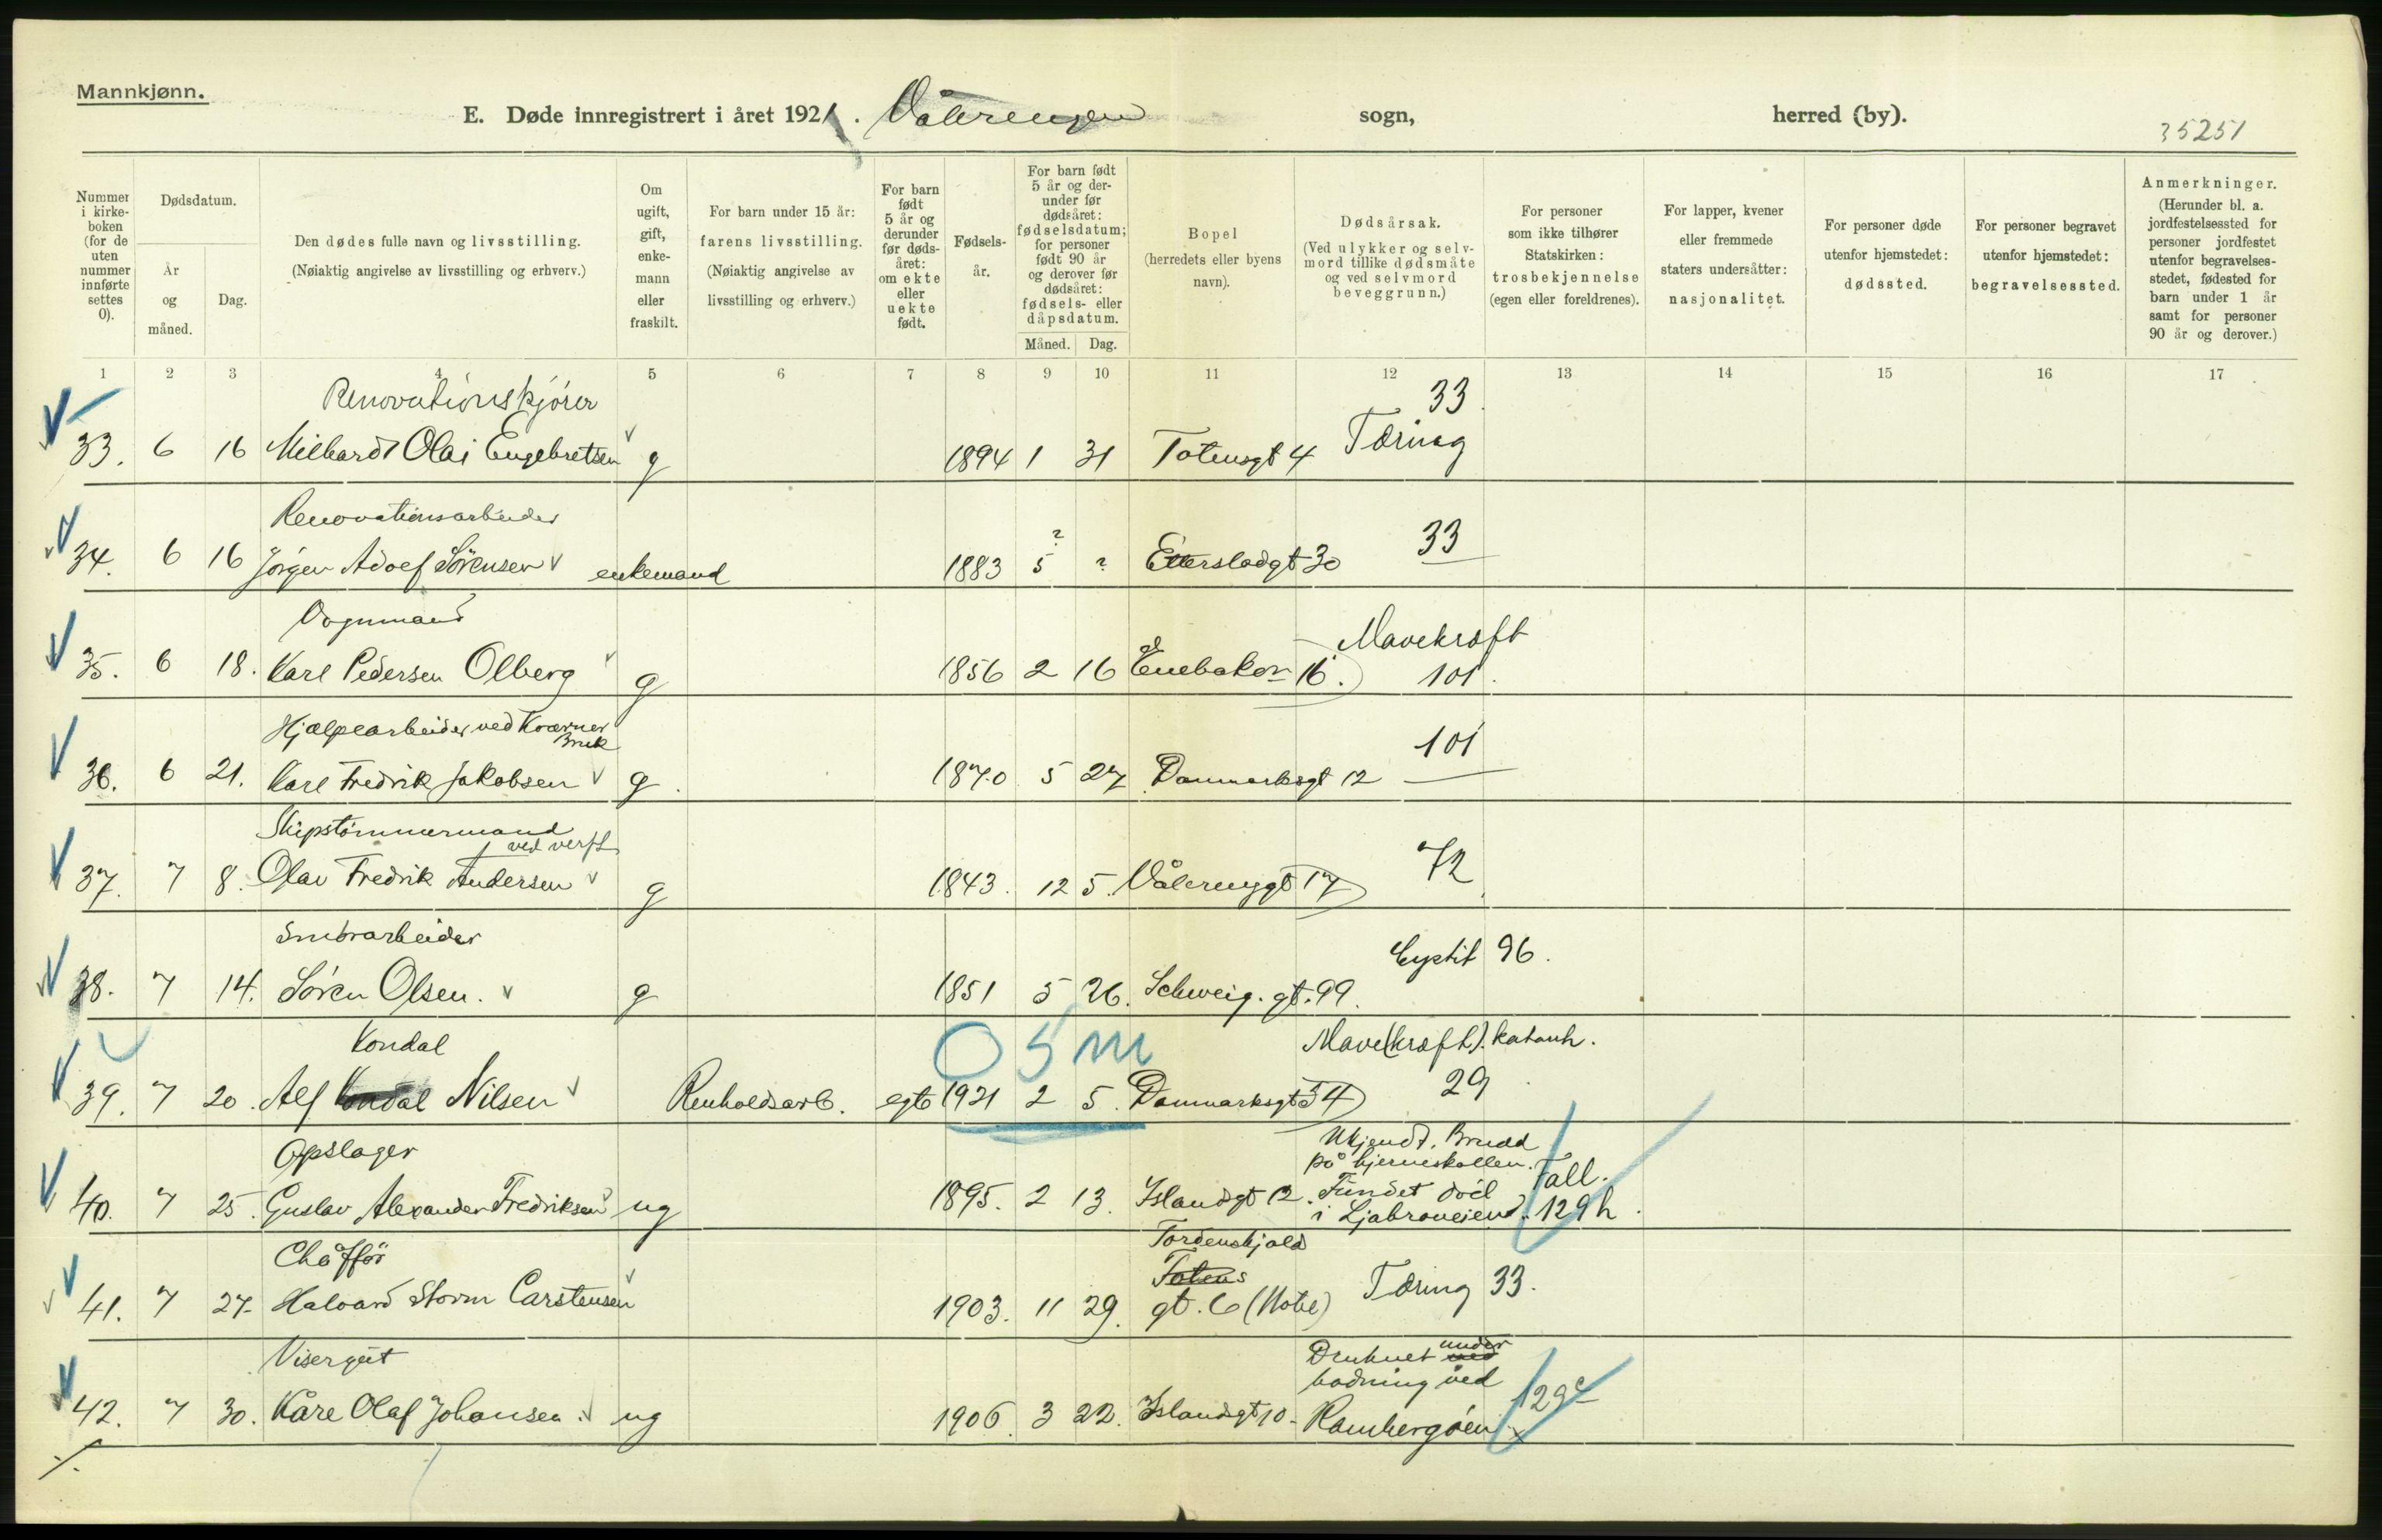 Mannkjønn.
E. Døde innregistrert i året 1921. Vålerengen sogn, herred (by).
35251
Nummer i kirke-boken (for de uten nummer innførte settes 0).
Dødsdatum.
År og måned.
Dag.
Den dødes fulle navn og livsstilling.
(Nøiaktig angivelse av livsstilling og erhverv.)
Om ugift, gift, enke-mann eller fraskilt.
For barn under 15 år: farens livsstilling.
(Nøiaktig angivelse av livsstilling og erhverv.)
For barn født 5 år og derunder før døds-året: om ekte eller uekte født.
Fødsels-år.
For barn født 5 år og der-under før dødsåret: fødselsdatum; for personer født 90 år og derover før dødsåret: fødsels- eller dåpsdatum.
Måned.
Dag.
Bopel
(herredets eller byens navn).
Dødsårsak.
(Ved ulykker og selv-mord tillike dødsmåte og ved selvmord beveggrunn.)
For personer som ikke tilhører Statskirken: trosbekjennelse (egen eller foreldrenes).
For lapper, kvener eller fremmede staters undersåtter: nasjonalitet.
For personer døde utenfor hjemstedet: dødssted.
For personer begravet utenfor hjemstedet: begravelsessted.
Anmerkninger.
(Herunder bl. a. jordfestelsessted for personer jordfestet utenfor begravelses-stedet, fødested for barn under 1 år samt for personer 90 år og derover.)
1 2 3 4 5 6 7 8 9 10 11 12 13 14 15 16 17
Renovationskjører 33
33. 6 16 Milhardt Olai Engebretsen g 1894 1 31 Totensgt 4 Tæring
Renovationsarbeider ? 33
34. 6 16 Jörgen Adolf Sörensen enkemand 1883 5 ? Etterstadgt 30
Vognmand Mavekræft
35. 6 18. Karl Pedersen Olberg g 1856 2 16 Enebakv 16. 101.
Hjælpearbeider ved Kværner Bruk 101
36. 6 21. Karl Fredrik Jakobsen g. 1870 5 27 Danmarksgt 12
Skipstömmermand ved verft 72
37. 7 8. Olav Fredrik Andersen g 1843. 12 5. Vålerenggt 17
Småarbeider Cystit 96.
38. 7 14. Sören Olsen. g 1851 5 26. Schweig. gt. 99.
Kondal 0 5 m Mave(kræft). katarrh.
39. 7 20. Alf Kondal Nilsen Renholdsarb. egte 1921 2 5. Danmarksgt 34 29
Opslager Ukjendt. Brudd på hjerneskallen. Fall.
40. 7 25. Gustav Alexander Fredriksen ug 1895. 2 13. Islandsgt 12. Fundet död i Ljabroveiend. 129h.
Chåfför Tordenskjold
Totens
41. 7 27. Halvard Storm Carstensen 1903. 11 29. gt. 6 (Hotel) Tæring 33.
Visergut Druknet ved under badning ved
42. 7 30. Kåre Olaf Johansen. ug 1906. 3 22. Islandsgt 10 - Rambergöen 129c